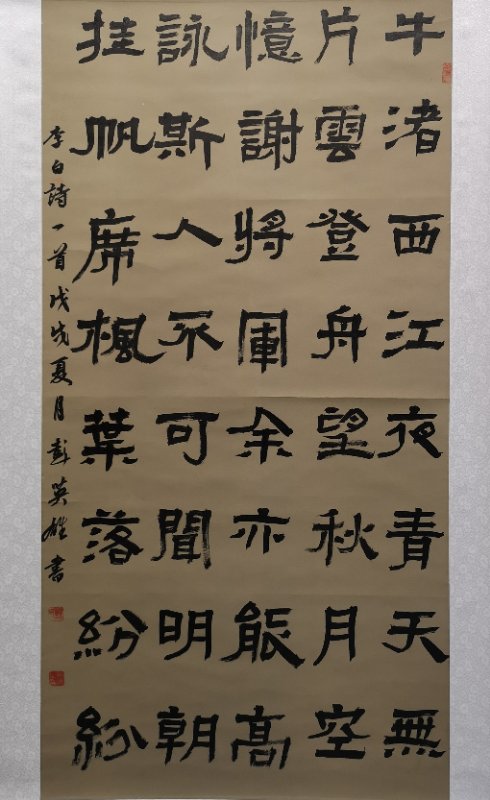 牛渚西江夜青天無
片雲登舟望秋月空
憶謝將軍余亦能高
詠斯人不可聞明朝
挂帆席楓葉落紛紛
李白詩一首戊戌夏月彭英雄書